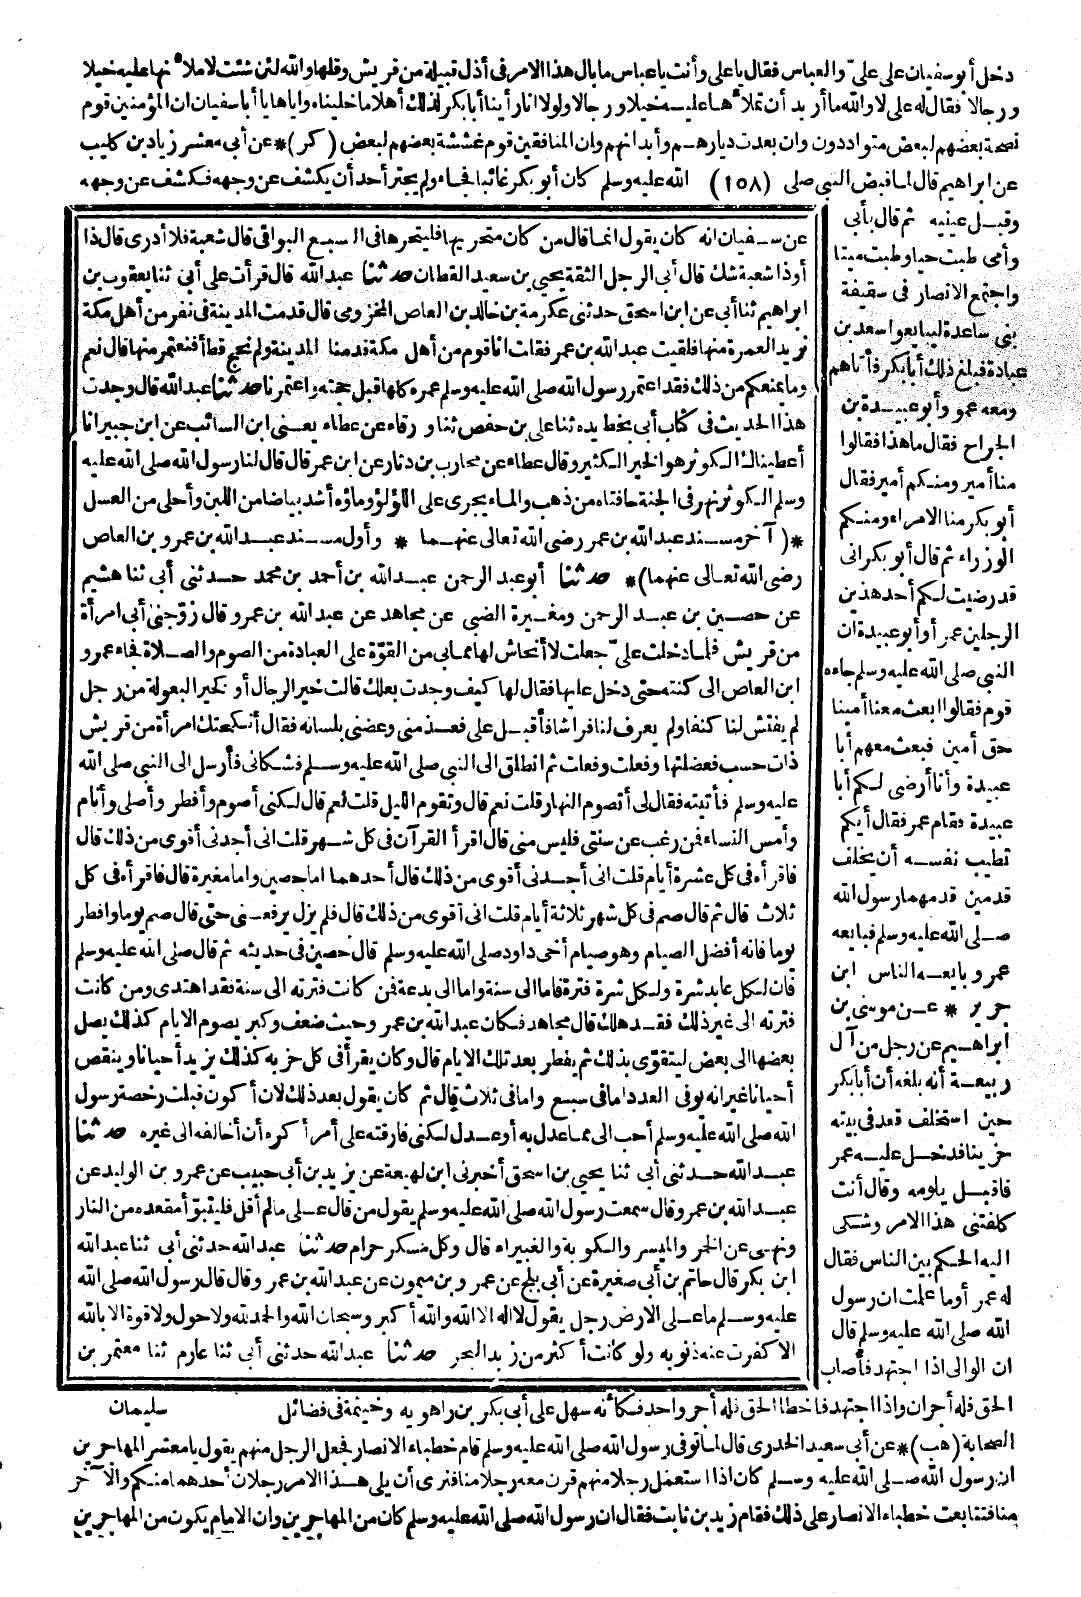 دخل أبو سفيان على علىّ والعباس فقال يا على وأنت يا عباس ما بال هذا الامر فى أذل قبيلة من قريش وقلها والله لئن شئت لاملأنها عليه خيلا
ورجالا فقال له على لا والله ما أريد أن تملأها عليه خيلا ورجالا ولولا انا رأينا أبا بكر لذلك أهلا ما خليناه واياها يا أبا سفيان ان المؤمنين قوم
نصحة بعضهم لبعض متوادون وان بعدت ديارهم وأبدانهم وان المنافقين قوم غششة بعضهم لبعض (كر)* عن أبى معشر زياد بن كليب
عن ابراهيم قال لما قبض النبى صلى (١٥٨) الله عليه وسلم كان أبو بكر غائبا فجاء ولم يجترأ أحد أن يكشف عن وجهه فكشف عن وجهه
وقبل عينيه ثم قال بأبى
وأمى طبت حيا وطبت ميتا
واجتمع الانصار فى سقيفة
بنى ساعدة ليبايعوا سعد بن
عبادة فبلغ ذلك أبا بكر فأتاهم
ومعه عمر وأبو عبيدة بن
الجراح فقال ما هذا فقالوا
منا أمير ومنكم أمير فقال
أبو بكر منا الامراء ومنكم
الوزراء ثم قال أبو بكر انى
قد رضيت لكم أحد هذين
الرجلين عمر أو أبو عبيدة ان
النبى صلى الله عليه وسلم جاءه
قوم فقالوا ابعث معنا أمينا
حق أمين فبعث معهم أبا
عبيدة وأنا أرضى لكم أبا
عبيدة فقام عمر فقال أيكم
تطيب نفسه أن يخلف
قدمين قدمهما رسول الله
صلى الله عليه وسلم فبايعه
عمر وبايعه الناس ابن
جرير * عن موسى بن
ابراهيم عن رجل من آل
ربيعة أنه بلغه أن أبا بكر
حين استخلف قعد فى بيته
حزينا فدخل عليه عمر
فاقبل يلومه وقال أنت
كلفتنى هذا الامر وشكى
اليه الحكم بين الناس فقال
له عمر أوما علمت ان رسول
الله صلى الله عليه وسلم قال
ان الوالى اذا اجتهد فأصاب
الحق فله أجران واذا اجتهد فاخطأ الحق فله أجر واحد فكأنه سهل على أبى بكر بن راهويه وخيثمة فى فضائل
الصحابة (هب)* عن أبى سعيد الخدرى قال لما توفى رسول الله صلى الله عليه وسلم قام خطباء الانصار فجعل الرجل منهم يقول يا معشر المهاجرين
ان رسول الله صلى الله عليه وسلم كان اذا استعمل رجلا منهم قرن معه رجلا منا فنرى أن يلى هذا الامر رجلان أحدهما منكم والآخر
منا فتتابعت خطباء الانصار على ذلك فقام زيد بن ثابت فقال ان رسول الله صلى الله عليه وسلم كان من المهاجرين وان الامام يكون من المهاجرين
عن سفيان انه كان يقول انما قال من كان متحريها فليتحرها فى السبع البواقى قال شعبة فلا أدرى قال ذا
أو ذا شعبة شك قال أبى الرجل الثقة يحيى بن سعيد القطان حدثنا عبد الله قال قرأت على أبى ثنا يعقوب بن
ابراهيم ثنا أبى عن ابن اسحق حدثنى عكرمة بن خالد بن العاص المخزومى قال قدمت المدينة فى نفر من أهل مكة
نريد العمرة منها فلقيت عبد الله بن عمر فقلت انا قوم من أهل مكة قدمنا المدينة ولم نحج قط أفنعتمر منها قال نعم
وما يمنعكم من ذلك فقد اعتمر رسول الله صلى الله عليه وسلم عمره كلها قبل حجته واعتمرنا حدثنا عبد الله قال وجدت
هذا الحديث فى كتاب أبى بخط يده ثنا على بن حفص ثنا ورقاء عن عطاء يعنى ابن السائب عن ابن جبير انا
أعطيناك الكوثر هو الخير الكثير وقال عطاء عن محارب بن دثار عن ابن عمر قال قال لنا رسول الله صلى الله عليه
وسلم الكوثر نهر فى الجنة حافتاه من ذهب والماء يجرى على اللؤلؤ وماؤه أشد بياضا من اللبن وأحلى من العسل
*(آخر مسند عبد الله بن عمر رضى الله تعالى عنهما * وأول مسند عبد الله بن عمرو بن العاص
رضى الله تعالى عنهما)* حدثنا أبو عبد الرحمن عبد الله بن أحمد بن محمد حدثنى أبى ثنا هشيم
عن حصين بن عبد الرحمن ومغيرة الضبى عن مجاهد عن عبد الله بن عمرو قال زوّجنى أبى امرأة
من قريش فلما دخلت علىّ جعلت لا أنحاش لها مما بى من القوّة على العبادة من الصوم والصلاة فجاء عمرو
ابن العاص الى كنته حتى دخل عليها فقال لها كيف وجدت بعلك قالت خير الرجال أو كخير البعولة من رجل
لم يفتش لنا كنفا ولم يعرف لنا فراشا فأقبل على فعذمنى وعضنى بلسانه فقال أنكحتك امرأة من قريش
ذات حسب فعضلتها وفعلت وفعلت ثم انطلق الى النبى صلى الله عليه وسلم فشكانى فأرسل الى النبى صلى الله
عليه وسلم فأتيته فقال لى أتصوم النهار قلت نعم قال وتقوم الليل قلت نعم قال لكنى أصوم وأفطر وأصلى وأنام
وأمس النساء فمن رغب عن سنتى فليس منى قال اقرأ القرآن فى كل شهر قلت انى أجدنى أقوى من ذلك قال
فاقرأه فى كل عشرة أيام قلت انى أجدنى أقوى من ذلك قال أحدهما اما حصين واما مغيرة قال فاقرأه فى كل
ثلاث قال ثم قال صم فى كل شهر ثلاثة أيام قلت انى أقوى من ذلك قال فلم يزل يرفعنى حتى قال صم يوما وافطر
يوما فانه أفضل الصيام وهو صيام أخى داود صلى الله عليه وسلم قال حصين فى حديثه ثم قال صلى الله عليه وسلم
فان لكل عابد شرة ولكل شرة فترة فاما الى سنة واما الى بدعة فمن كانت فترته الى سنة فقد اهتدى ومن كانت
فترته الى غير ذلك فقد هلك قال مجاهد فكان عبد الله بن عمرو حيث ضعف وكبر يصوم الايام كذلك يصل
بعضها الى بعض ليتقوى بذلك ثم يفطر بعد تلك الايام قال وكان يقرأ فى كل حزبه كذلك يزيد أحيانا وينقص
أحيانا غير انه يوفى العدد اما فى سبع واما فى ثلاث قال ثم كان يقول بعد ذلك لان أكون قبلت رخصة رسول
الله صلى الله عليه وسلم أحب الى مما عدل به أو عدل لكنى فارقته على أمر أكره أن أخالفه الى غيره حدثنا
عبد الله حدثنى أبى ثنا يحيى بن اسحق أخبرنى ابن لهيعة عن يزيد بن أبى حبيب عن عمرو بن الوليد عن
عبد الله بن عمرو قال سمعت رسول الله صلى الله عليه وسلم يقول من قال على ما لم أقل فليتبوّأ مقعده من النار
ونهى عن الخمر والميسر والكوبة والغبيراء قال وكل مسكر حرام حدثنا عبد الله حدثنى أبى ثنا عبد الله
ابن بكر قال حاتم بن أبى صغيرة عن أبى بلج عن عمرو بن ميمون عن عبد الله بن عمرو قال قال رسول الله صلى الله
عليه وسلم ما على الارض رجل يقول لا اله الا الله والله أكبر وسبحان الله والحمد لله ولا حول ولا قوة الا بالله
الا كفرت عنه ذنوبه ولو كانت أكثر من زبد البحر حدثنا عبد الله حدثنى أبى ثنا عارم ثنا معتمر بن
سليمان